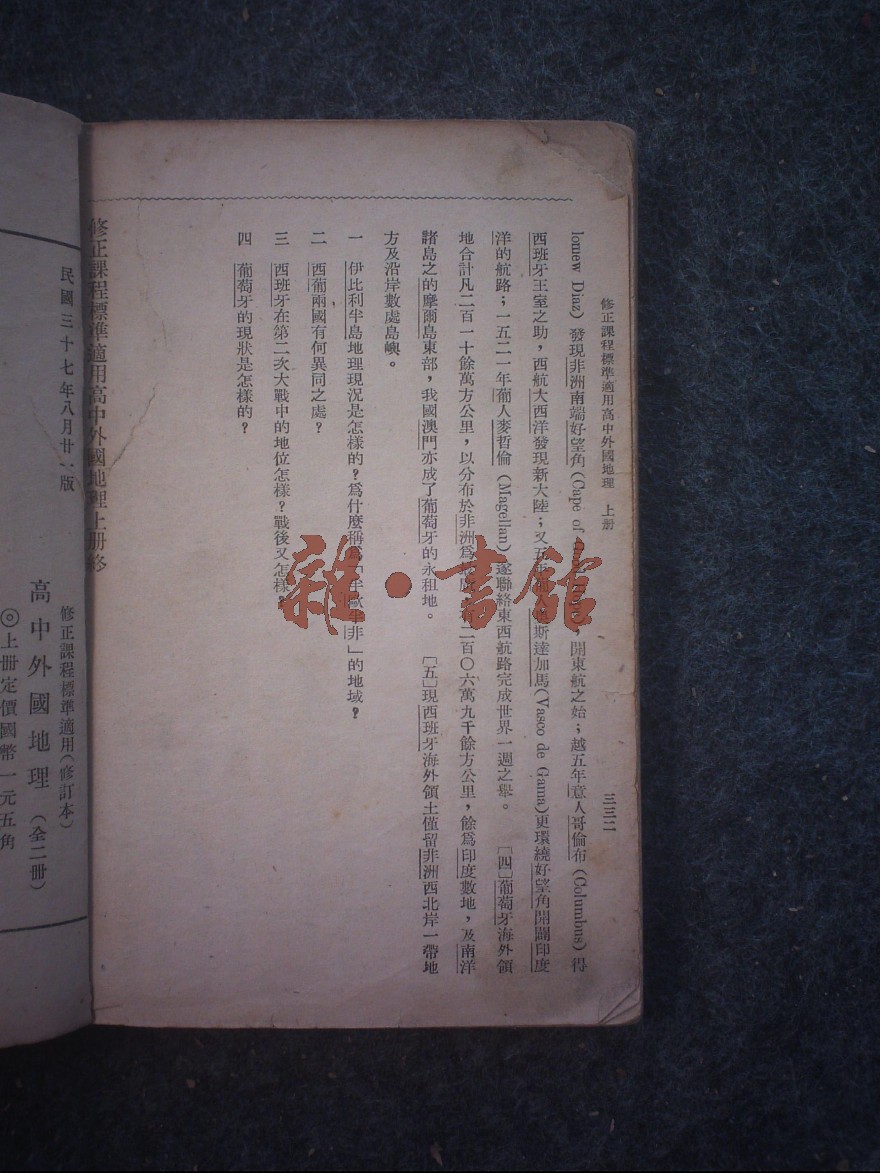 修正課程標準適用高中外國地理 上册 三三二
lomew Diaz) 發現非洲南端好望角(Cape of Good Hope),開東航之始;越五年意人哥倫布(Columbus)得
西班牙王室之助,西航大西洋發現新大陸;又五年葡人 斯達加馬(Vasco de Gama)更環繞好望角開闢印度
洋的航路;一五二一年葡人麥哲倫(Magellan)遂聯絡東西航路完成世界一週之舉。 〔四〕葡萄牙海外領
地合計凡二百一十餘萬方公里,以分布於非洲爲 有二百〇六萬九千餘方公里,餘爲印度數地,及南洋
諸島之的摩爾島東部,我國澳門亦成了葡萄牙的永租地。 〔五〕現西班牙海外領土僅留非洲西北岸一帶地
方及沿岸數處島嶼。
一 伊比利半島地理現況是怎樣的?爲什麼稱爲「半歐半非」的地域?
二 西葡兩國有何異同之處?
三 西班牙在第二次大戰中的地位怎樣?戰後又怎樣?
四 葡萄牙的現狀是怎樣的?
修正課程標準適用高中外國地理上册終
民國三十七年八月廿一版
修正課程標準適用(修訂本)
高中外國地理(全二冊)
◎上冊定價國幣一元五角
雜·書館